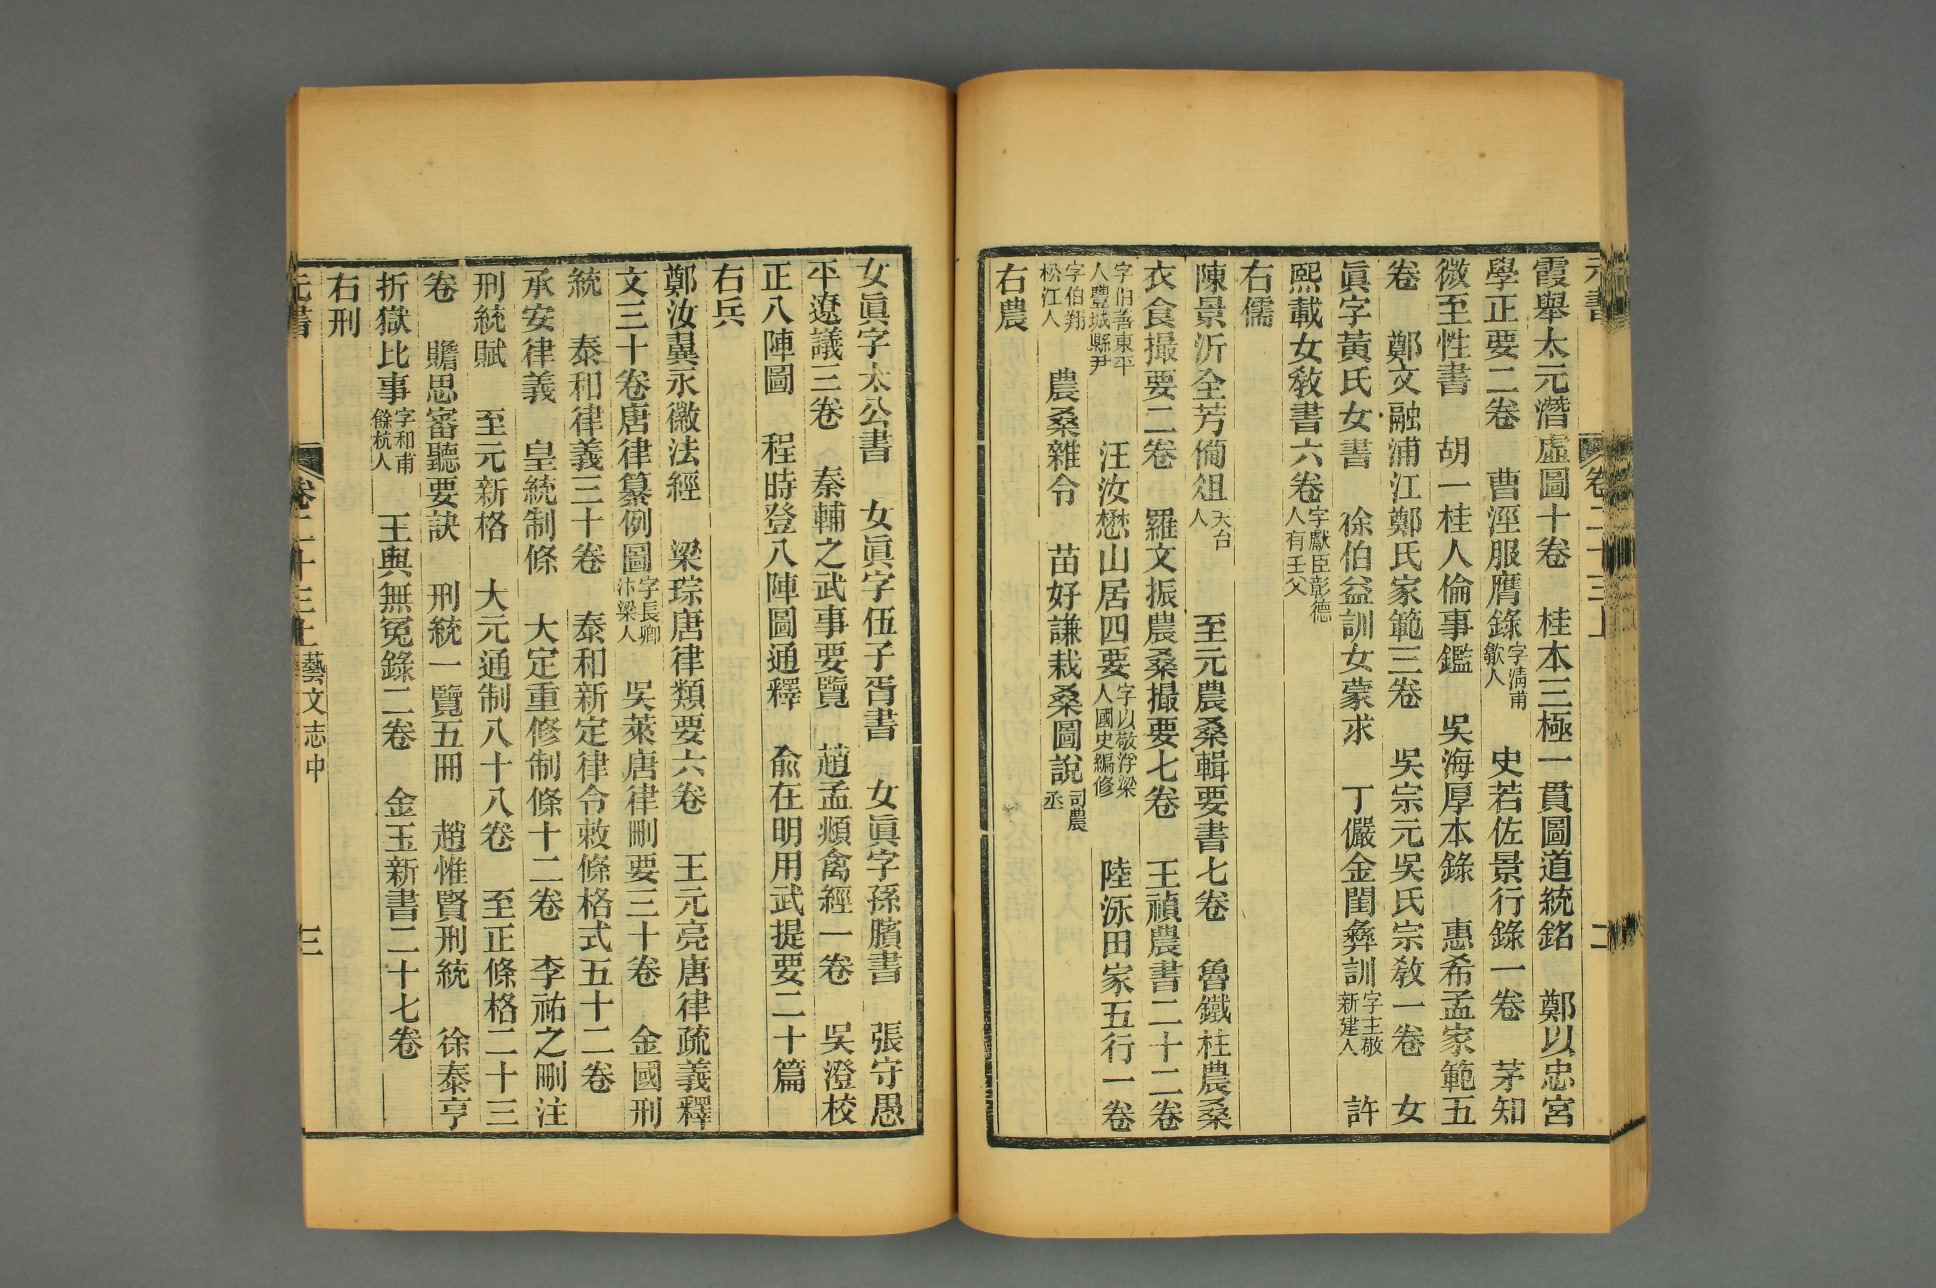 霞舉太元潛虛圖十卷　桂本三極一貫圖道統銘　鄭以忠宮
學正要二卷　曹涇服膺錄字清甫歙人　史若佐景行錄一卷　茅知
微至性書　胡一桂人倫事鑑　吳海厚本錄　惠希孟家範五
卷　鄭文融浦江鄭氏家範三卷　吳宗元吳氏宗敎一卷　女
眞字黃氏女書　徐伯益訓女蒙求　丁儼金閨彝訓字主敬新建人　許
熙載女敎書六卷字獻臣彰德人有壬父
右儒
陳景沂全芳備俎天台人　至元農桑輯要書七卷　魯鐵柱農桑
衣食撮要二卷　羅文振農桑撮要七卷　王禎農書二十二卷
字伯善東平人豐城縣尹　汪汝懋山居四要字以敬浮梁人國史編修　陸泳田家五行一卷
字伯翔松江人　農桑雜令　苗好謙栽桑圖說司農丞
右農
元書　卷二十三上　二
女眞字太公書　女眞字伍子胥書　女眞字孫臏書　張守愚
平遼議三卷　秦輔之武事要覽　趙孟頫禽經一卷　吳澄校
正八陣圖　程時登八陣圖通釋　俞在明用武提要二十篇
右兵
鄭汝翼永徽法經　梁琮唐律類要六卷　王元亮唐律疏義釋
文三十卷唐律纂例圖字長卿汴梁人　吳萊唐律刪要三十卷　金國刑
統　泰和律義三十卷　泰和新定律令敕條格式五十二卷
承安律義　皇統制條　大定重修制條十二卷　李祐之刪注
刑統賦　至元新格　大元通制八十八卷　至正條格二十三
卷　贍思審聽要訣　刑統一覽五冊　趙惟賢刑統　徐泰亨
折獄比事字和甫餘杭人　王與無冤錄二卷　金玉新書二十七卷
右刑
元書　卷二十三上藝文志中　三